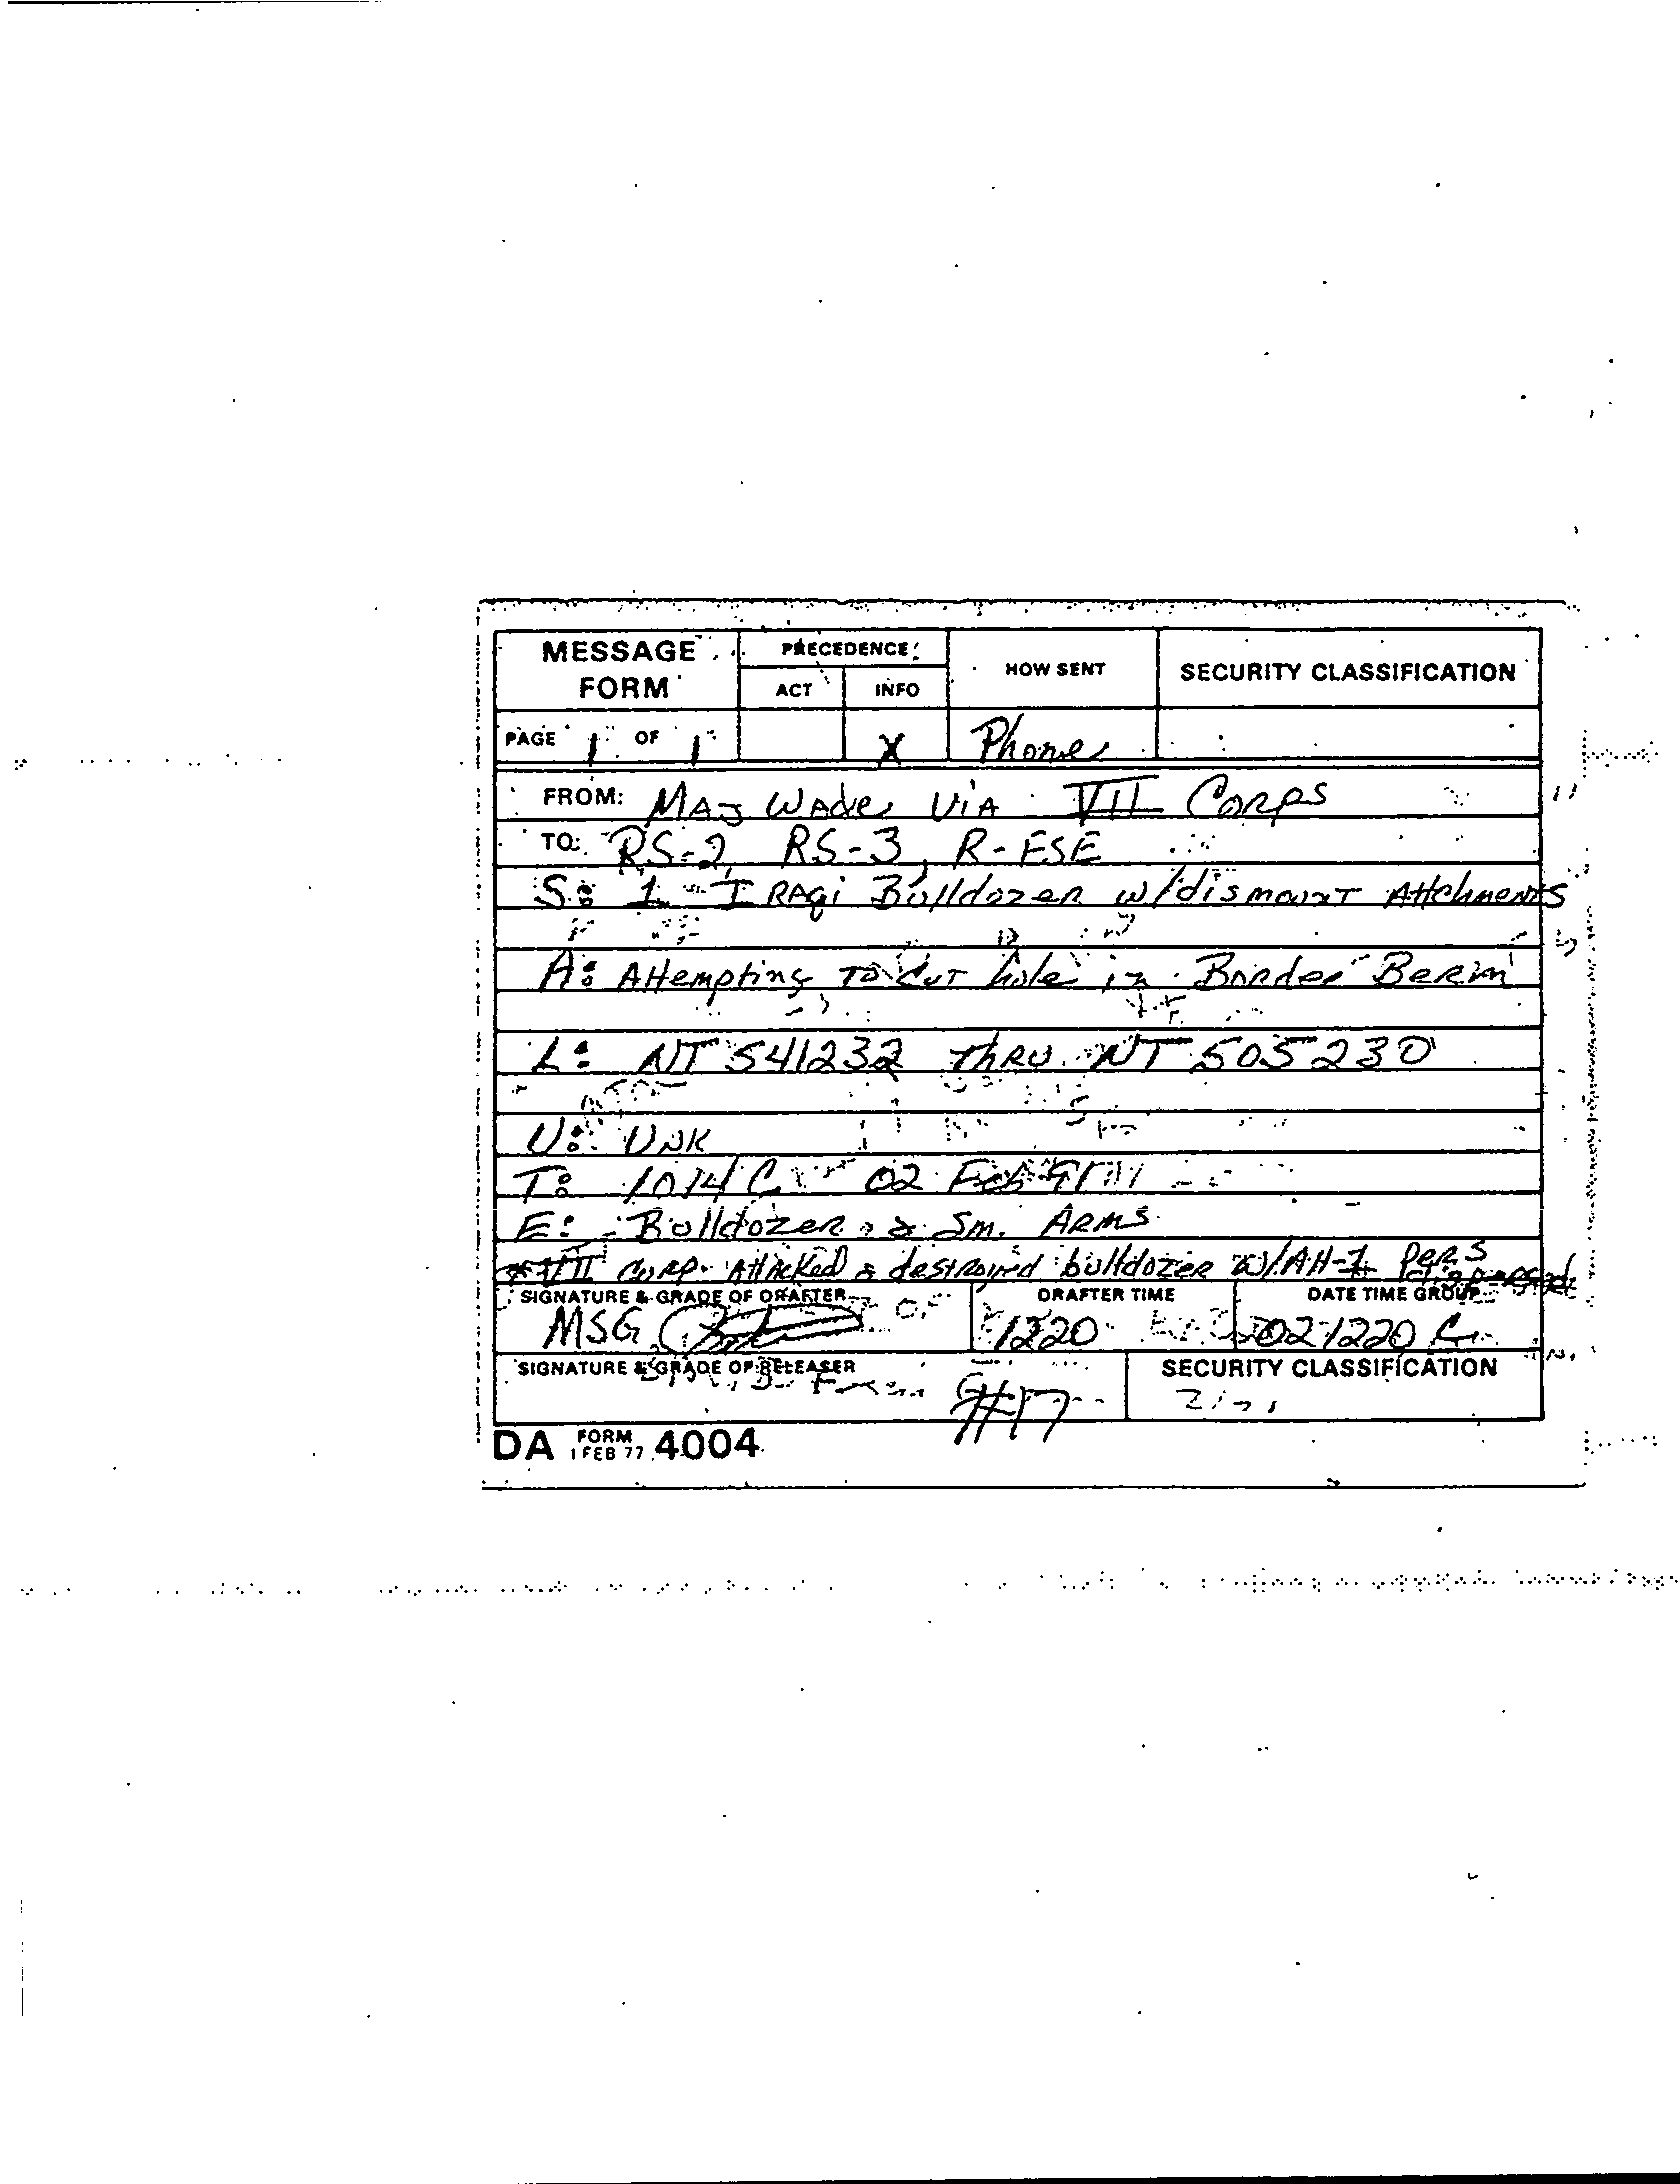 MESSAGE FORM
PRECEDENCE
ACT INFO
HOW SENT
SECURITY CLASSIFICATION
PAGE 1 OF 1 X Phone
FROM: MAJ WAde ViA VII CORPS
TO: RS-2, RS-3, R-FSE
S: 1 - IRAqi Bulldozer w/dismount Attchments
A: Attempting To Cut hole in Border Berim
L: NT 541232 thru NT 505230
U: UNK
T: 1014 C 02 Feb 91
E: Bulldozer & Sm. ARMS
* VII Corp. Attacked & destroyed bulldozer w/AH-1 Pers dispersed
SIGNATURE & GRADE OF DRAFTER DRAFTER TIME DATE TIME GROUP
MSG 1220 021220 C
SIGNATURE & GRADE OF RELEASER SECURITY CLASSIFICATION
#17
DA FORM 1 FEB 77 4004